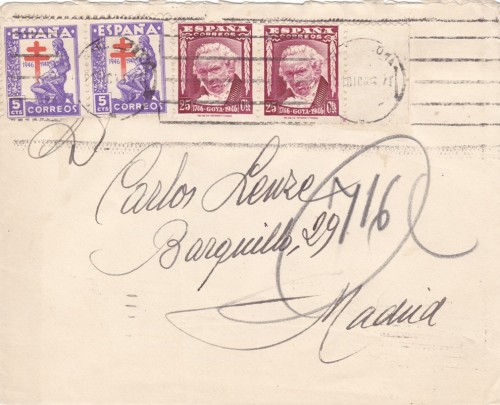 ESPAÑA
1946 1947
5 CTS CORREOS
ESPAÑA
5 CTS CORREOS
ESPAÑA
CORREOS
25 1746-GOYA-1946 Cts
ESPAÑA
CORREOS
25 1746-GOYA-1946 Cts
Carlos
Barquillo, 29
716
Madrid